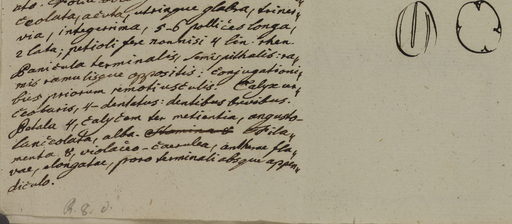 ceolata, acuta, utringue glabra, triner-
via, integerrima, 5-6 pollices longa,
2 lata; petioli fere nonnisi 4 lin. rhen.
Panicula terminalis, semispithalis: ra-
mis ramulisque oppositis: conjugationi-
bus priorum remotiusculis. Calyx ur-
ceolaris, 4-dentatus: dentibus brevibus.
Petala 4, calycem ter metientia, angusto
lanceolata, alba. Stamina 8 Fila-
menta 8, violaceo-caerulea, antherae fla-
vae, elongatae, poro terminali absque appen-
diculo.
R. 8. d.